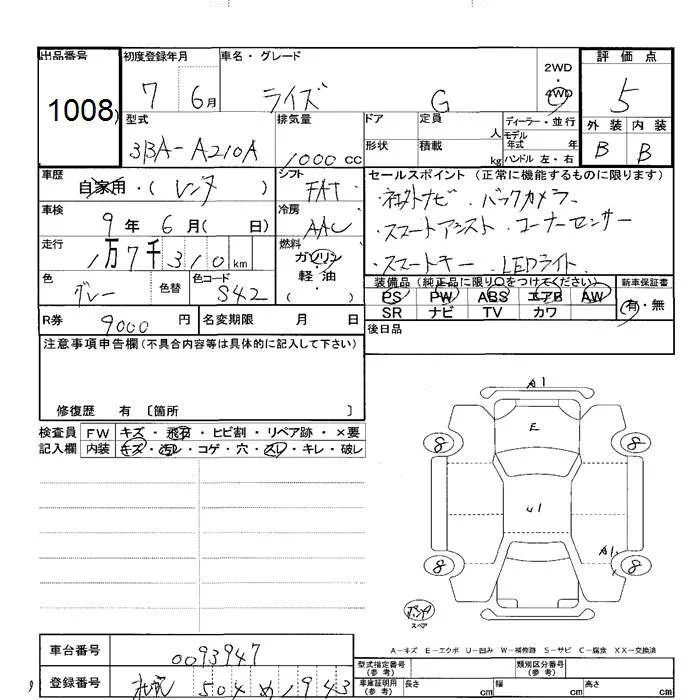 出品番号
1008
初度登録年月
7 6月
車名・グレード
ライズ G
2WD
・
4WD
評価点
5
外装 内装
B B
型式
3BA-A210A
排気量
1000 cc
ドア
形状
定員 人
積載 kg
ディーラー・並行
モデル
年式 年
ハンドル 左・右
車歴
自家用・( レンタ )
シフト
FAT
車検
9年 6月( 日)
冷房
AAC
走行
1万7千310km
燃料
ガソリン
軽・油
( )
色
グレー
色替
色コード
S42
セールスポイント (正常に機能するものに限ります)
・社外ナビ・バックカメラ
・スマートアシスト・コーナーセンサー
・スマートキー・LEDライト
装備品 (純正品に限り○をつけてください)
PS PW ABS エアB AW
SR ナビ TV カワ
新車保証書
有・無
R券 9000 円
名変期限 月 日
後日品
注意事項申告欄(不具合内容等は具体的に記入して下さい)
修復歴 有 〔箇所 〕
検査員
記入欄
FW キズ・飛石・ヒビ割・リペア跡・×要
内装 キズ・汚レ・コゲ・穴・スレ・キレ・破レ
A1
E
8 8
U1
A1
8 8
パンク
スペア
A-キズ E-エクボ U-凹み W-補修跡 S-サビ C-腐食 XX-交換済
車台番号 0093947
登録番号 札幌 504 め 1943
型式指定番号
(参考)
類別区分番号
(参考)
車庫証明用
(参考)
長さ cm 幅 cm 高さ cm